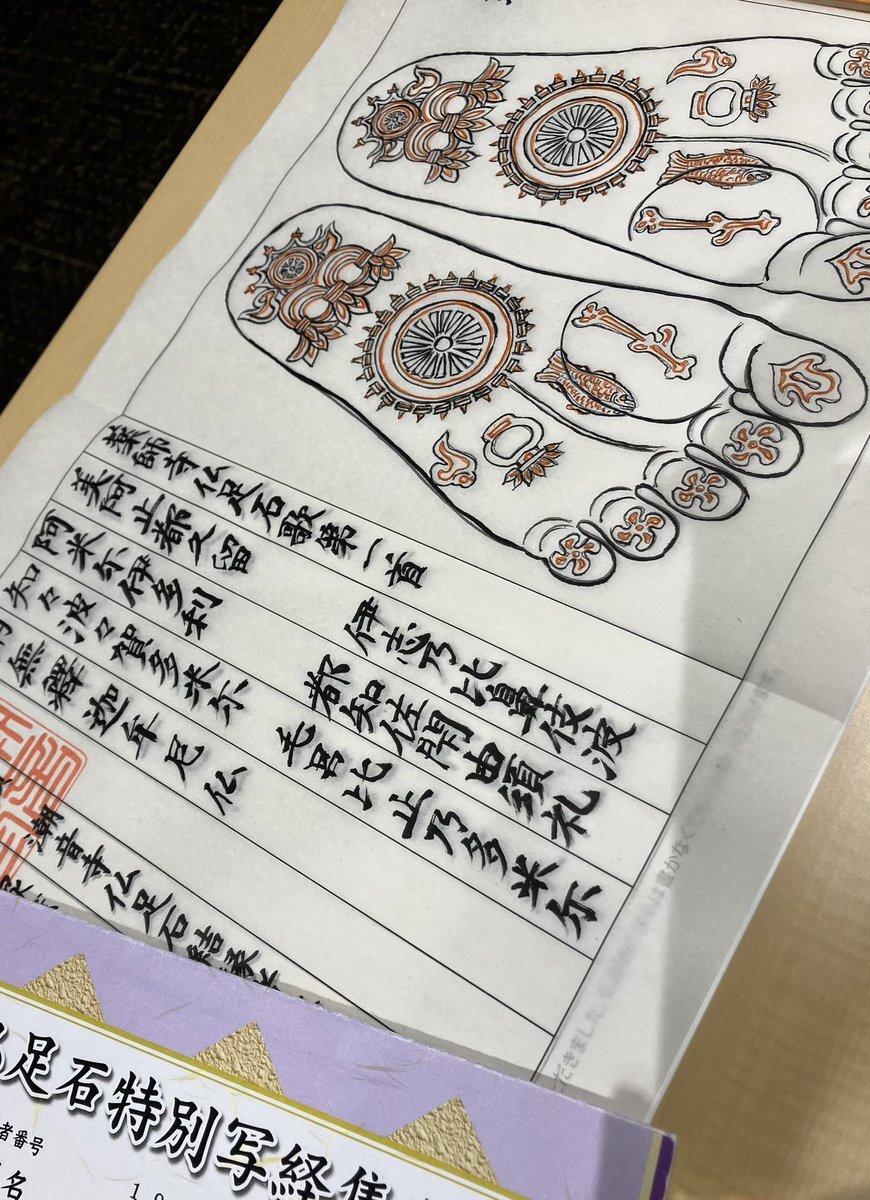 薬師寺仏足石歌第一首
美阿止都久留 伊志乃比鼻伎波
阿米尓伊多利 都知佐閇由須礼
知々波々賀多米尓 毛呂比止乃多米尓
無釋迦牟尼仏
潮音寺仏足石結縁
足石特別写経集
者番号
名